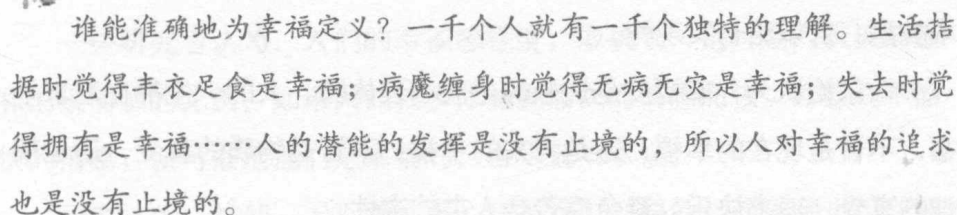 谁能准确地为幸福定义？一千个人就有一千个独特的理解。生活拮
据时觉得丰衣足食是幸福；病魔缠身时觉得无病无灾是幸福；失去时觉
得拥有是幸福………人的潜能的发挥是没有止境的，所以人对幸福的追求
也是没有止境的。